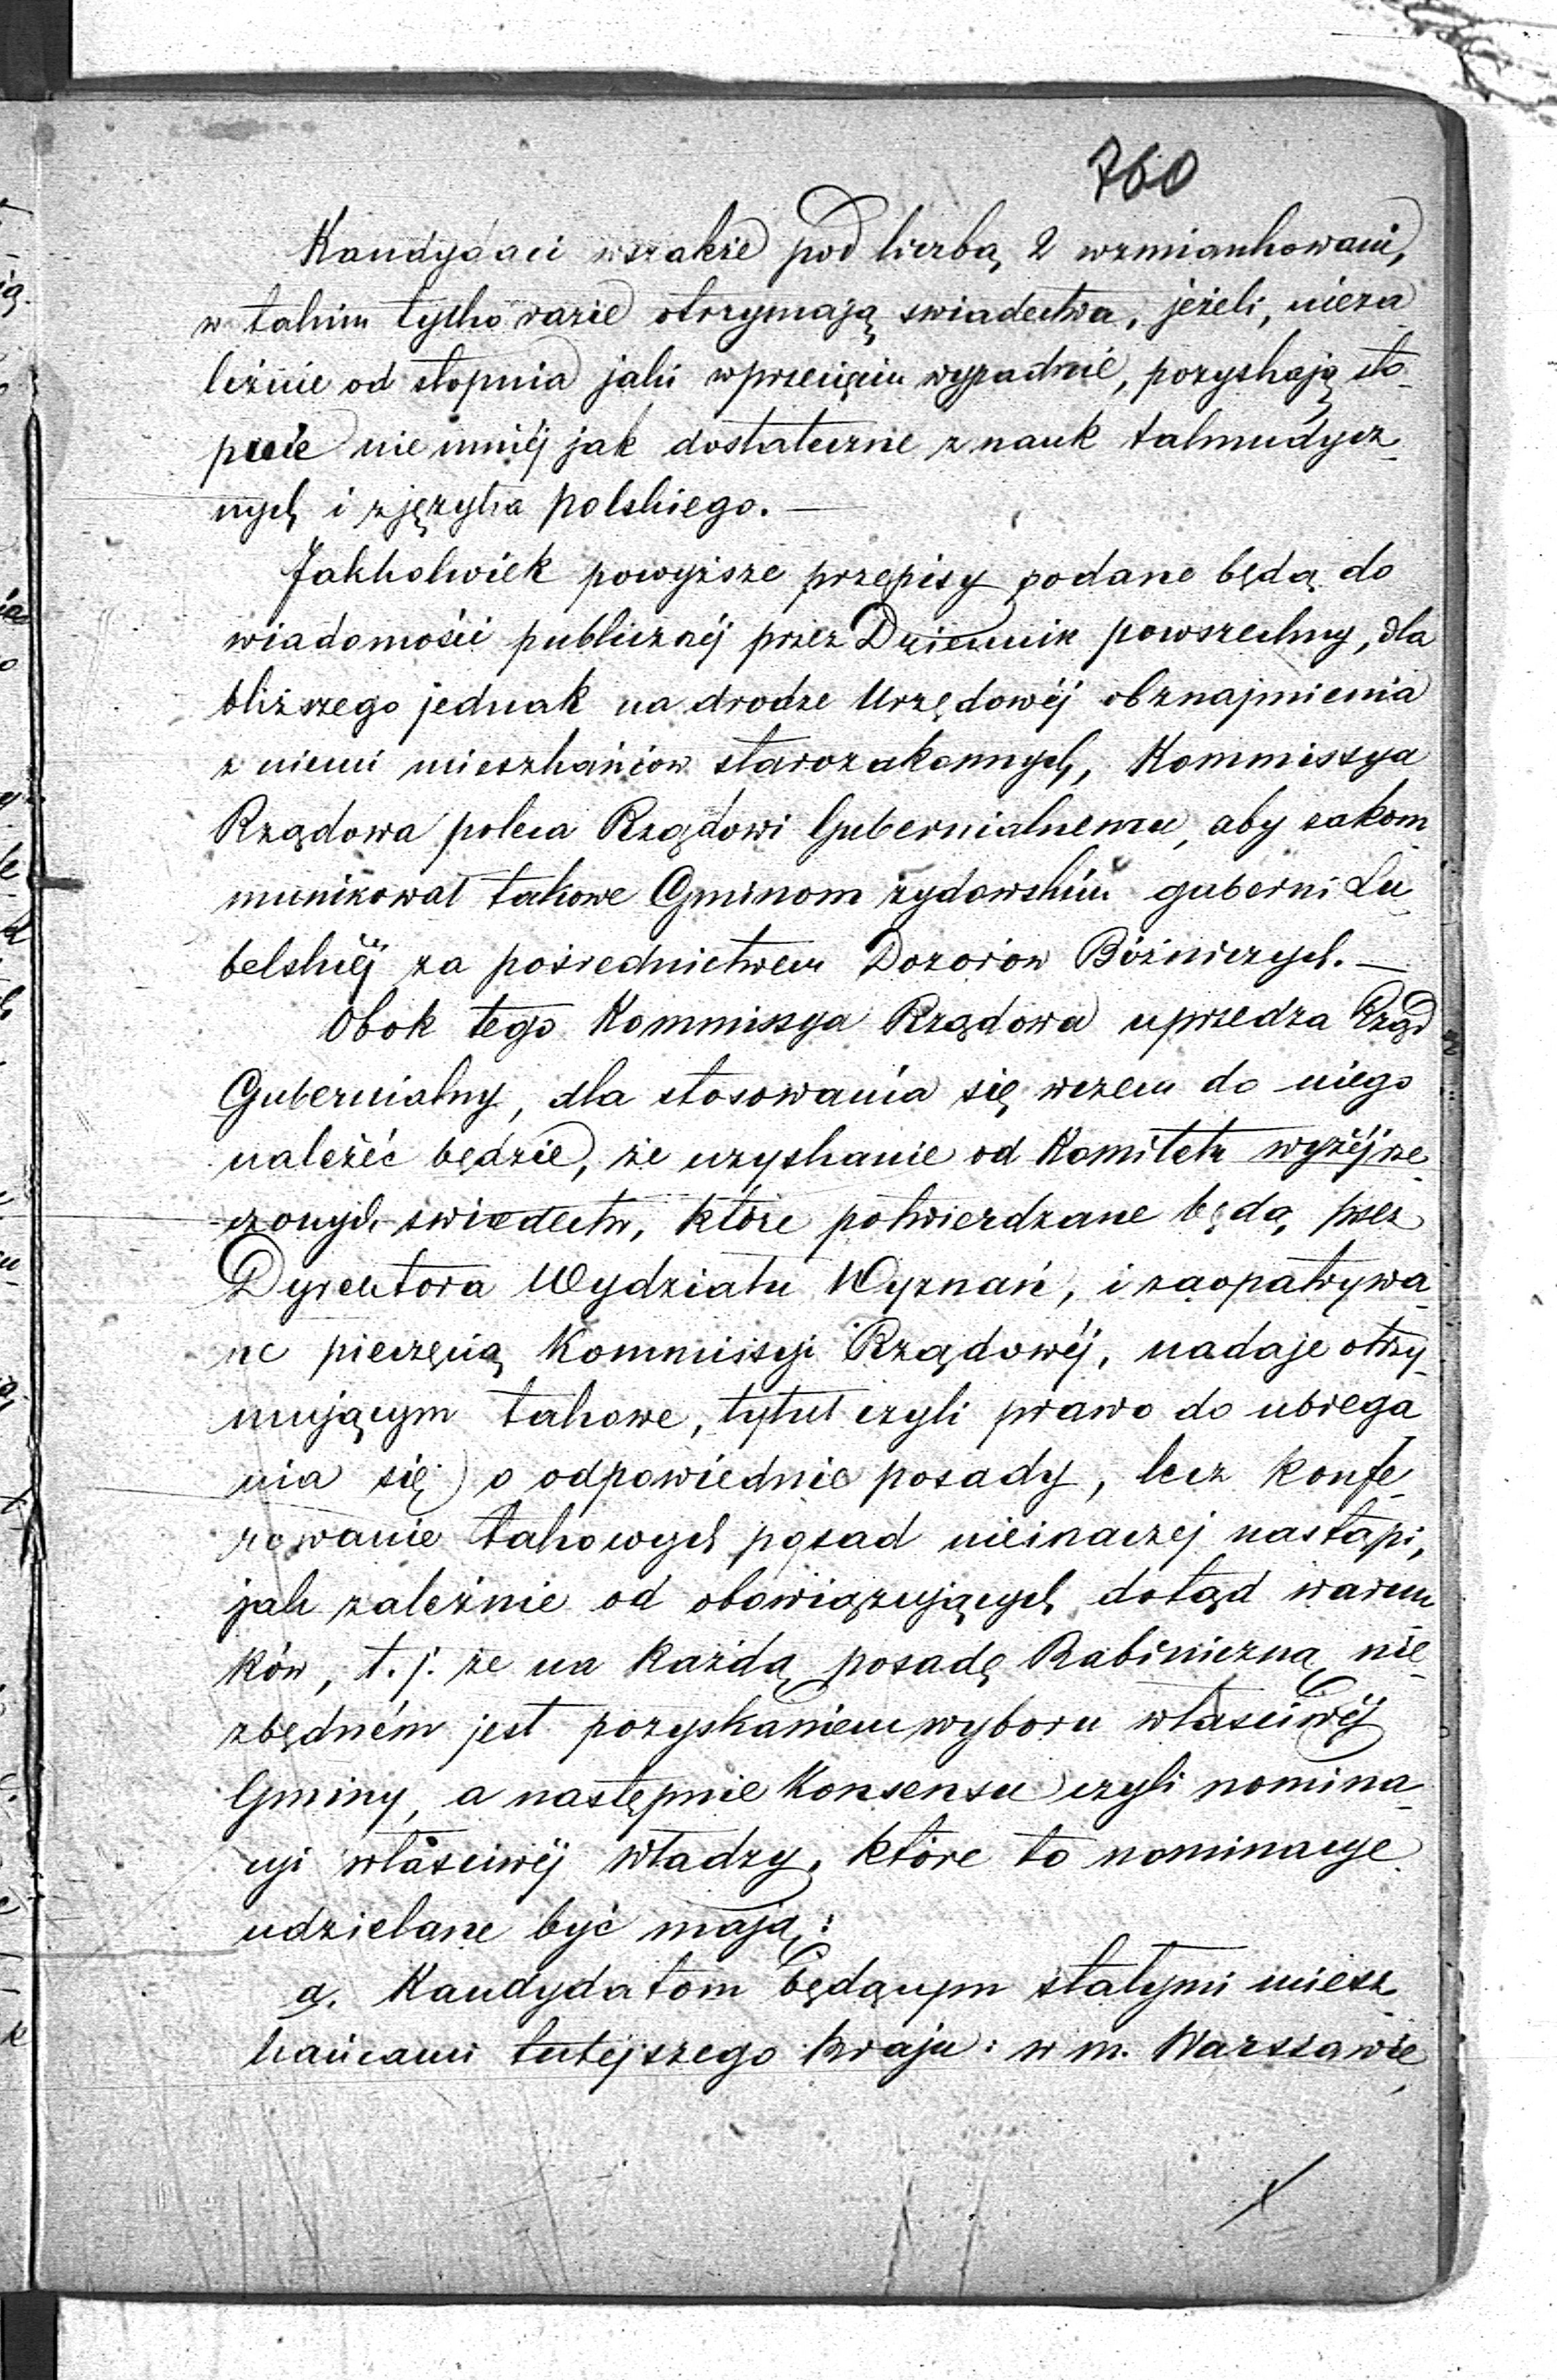 760
Kandydaci wszakże pod liczbą 2 wzmiankowani,
w takim tylko razie otrzymają swiadectwa, jeżeli, nieza
leżnie od stopnia jaki wprzecięciu wypadnie, pozyskają sto-
pnie nie mniéj jak dostateczne z nauk talmudycz-
nych i z języka polskiego. —
Jakkolwiek powyższe przepisy podane będą do
wiadomości publicznéj przez Dziennik powszechny, dla
bliższego jednak na drodze Urzędowéj obznajmienia
z niemi mieszkańców starozakonnych, Kommissya
Rządowa poleca Rządowi Gubernialnemu, aby zakom
munikował takowe Gminom żydowskim guberni Lu-
belskiéj za pośrednictwem Dozorów Bóźniczych. —
Obok tego Kommissya Rządowa uprzedza Rząd
Gubernialny, dla stosowania się wczem do niego
należéć będzie, że uzyskanie od Komitetu wyżéj rze-
czonych swiadectw, które potwierdzane będą przez
Dyrektora Wydziału Wyznań, i zaopatrywa-
ne pieczęcią Kommissyi Rządowéj, nadaje otrzy-
mującym takowe, tytuł czyli prawo do ubiega
nia się o odpowiednie posady, lecz konfe-
rowanie takowych posad nieinaczej nastąpi,
jak zależnie od obowiązujących dotąd warun
ków, t. j. że na każdą posadę Rabiniczną nie-
zbędném jest pozyskaniem wyboru właściwéj
Gminy, a następnie Konsensu czyli nomina-
cyi właściwéj władzy, które to nominacye
udzielane być mają:
a. Kandydatom będącym stałymi miesz-
kańcami tutejszego kraju: w m. Warszawie,